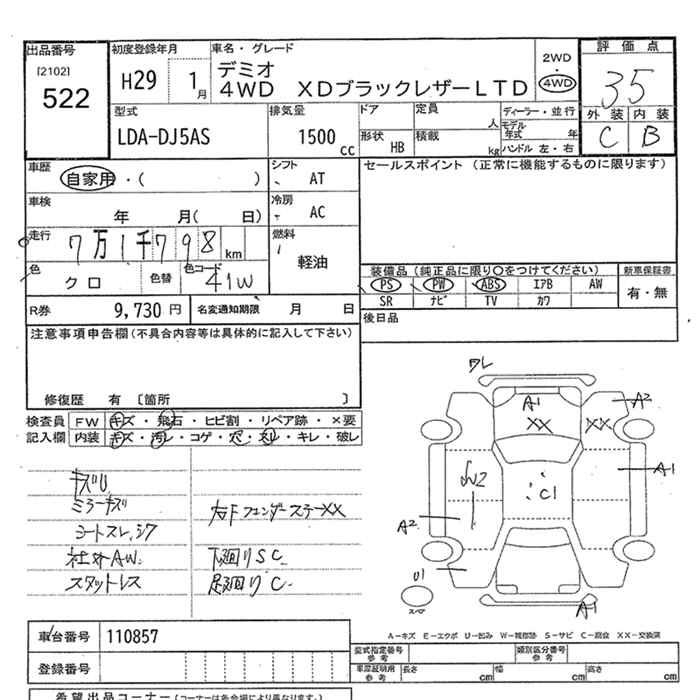 出品番号 初度登録年月 車名・グレード 2WD・4WD 評価点
[2102]
522 H29 1月 デミオ
4WD XDブラックレザーLTD 35
型式 排気量 ドア 定員 人 ディーラー・並行 外装 内装
LDA-DJ5AS 1500cc 形状 HB 積載 kg モデル年式 年 C B
ハンドル 左・右
車歴 自家用・( ) シフト AT セールスポイント (正常に機能するものに限ります)
車検 年 月( 日) 冷房 AC
走行 7万1千798km 燃料 軽油
色 クロ 色替 色コード 41W 装備品(純正品に限り〇をつけてください) 新車保証書
PS PW ABS エアB AW 有・無
SR ナビ TV カワ
R券 9,730円 名変通知期限 月 日 後日品
注意事項申告欄(不具合内容等は具体的に記入して下さい)
修復歴 有 〔箇所 〕
検査員 FW キズ・飛石・ヒビ割・リペア跡・×要
記入欄 内装 キズ・汚レ・コゲ・穴・スリ・キレ・破レ
ワレ
A1 A2
XX XX
A1
C1
A2
U1
スペア
A1
キズU
ミラーキズ
シートスレ,シワ
社外AW.
スタットレス
右Fフェンダーステー××
下廻りSC.
足廻りC.
A-キズ E-エクボ U-凹み W-補修跡 S-サビ C-腐食 XX-交換済
車台番号 110857
登録番号
型式指定番号 参考 類別区分番号 参考
車庫寸法 参考 長さ cm 幅 cm 高さ cm
希望出品コーナー